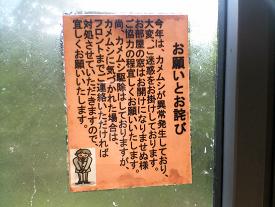 お願いとお詫び
今年は、カメムシが異常発生しており、
大変、ご迷惑をお掛けしております。
お部屋の窓はお開けになりませぬ様
ご協力の程宜しくお願いいたします。
尚、カメムシ駆除はしておりますが、
カメムシに気づかれた場合は、
フロントまでご連絡いただければ
対処させていただきますので、
宜しくお願いいたします。